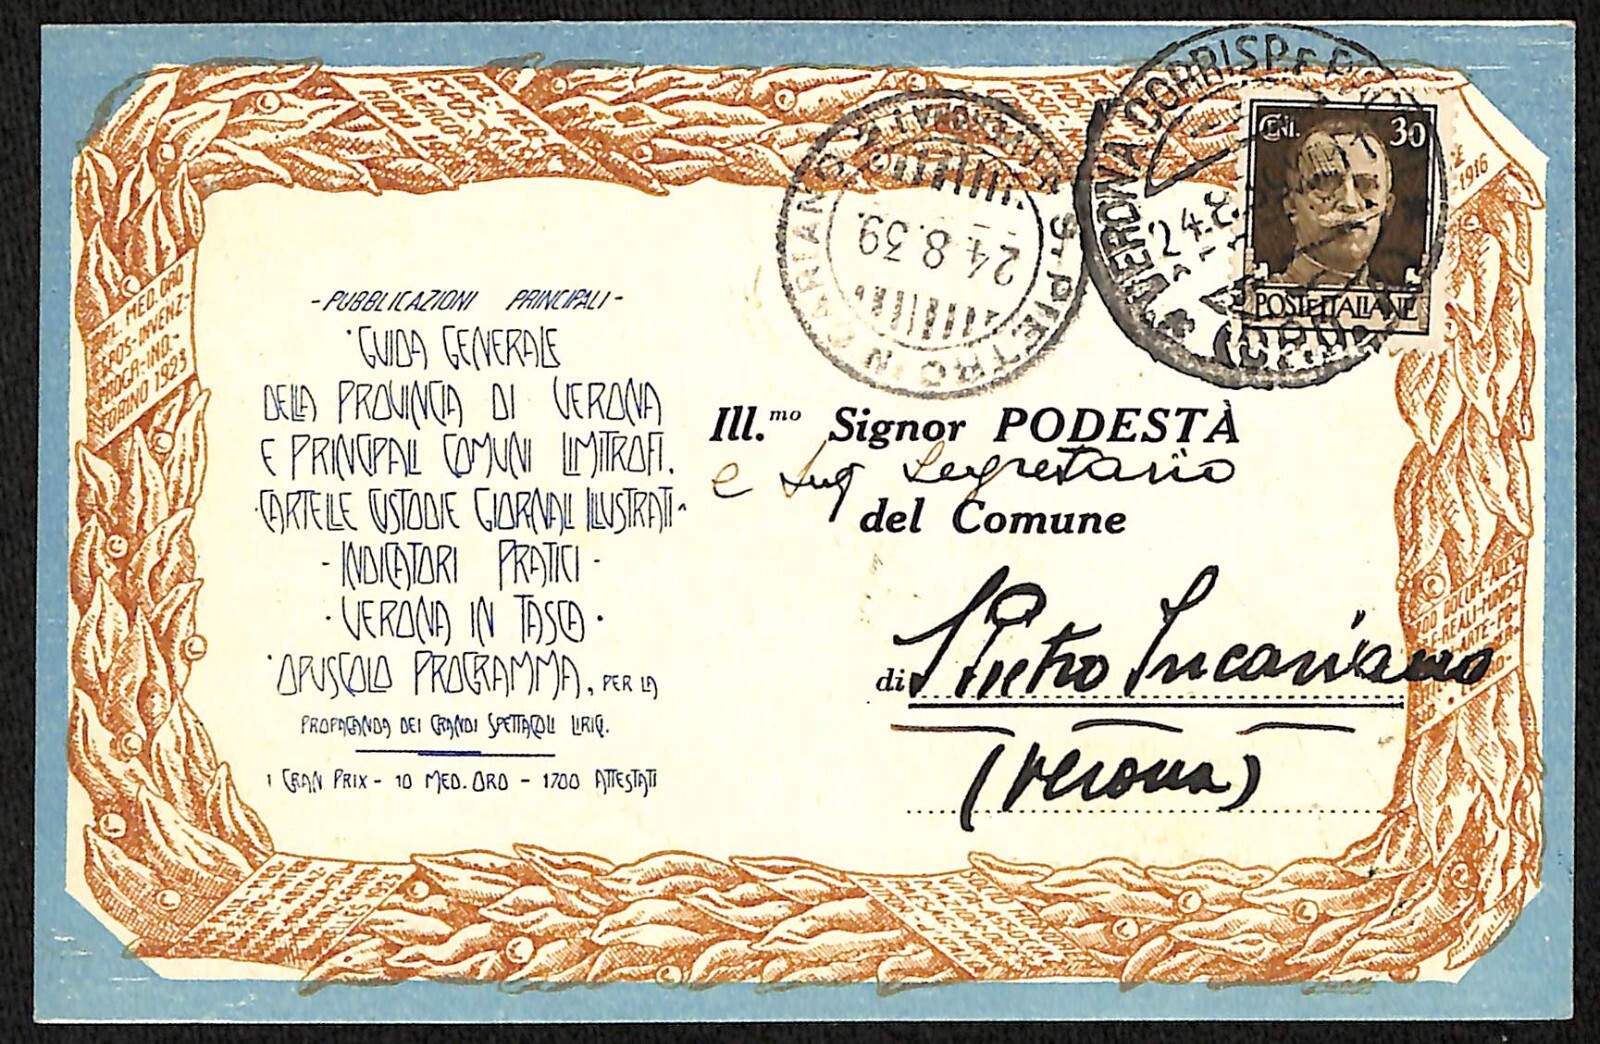 - PUBBLICAZIONI PRINCIPALI -
GUIDA GENERALE
DELLA PROVINCIA DI VERONA
E PRINCIPALI COMUNI LIMITROFI.
CARTELLE CUSTODIE GIORNALI ILLUSTRATI
- INDICATORI PRATICI -
· VERONA IN TASCA ·
OPUSCOLO PROGRAMMA, PER LA
PROPAGANDA DEI GRANDI SPETTACOLI LIRICI.
1 GRAN PRIX - 10 MED. ORO - 1700 ATTESTATI
MED. ORO
ESPOS. INVENZ-
PROGR-IND-
TORINO 1923
S. PIETRO IN CARIANO
24.8.39.
VERONA CORRISP
24.8
CENT. 30
POSTE ITALIANE
1916
Ill.mo Signor PODESTÀ
e Sig Segretario
del Comune
di S Pietro Incariano
(Verona)